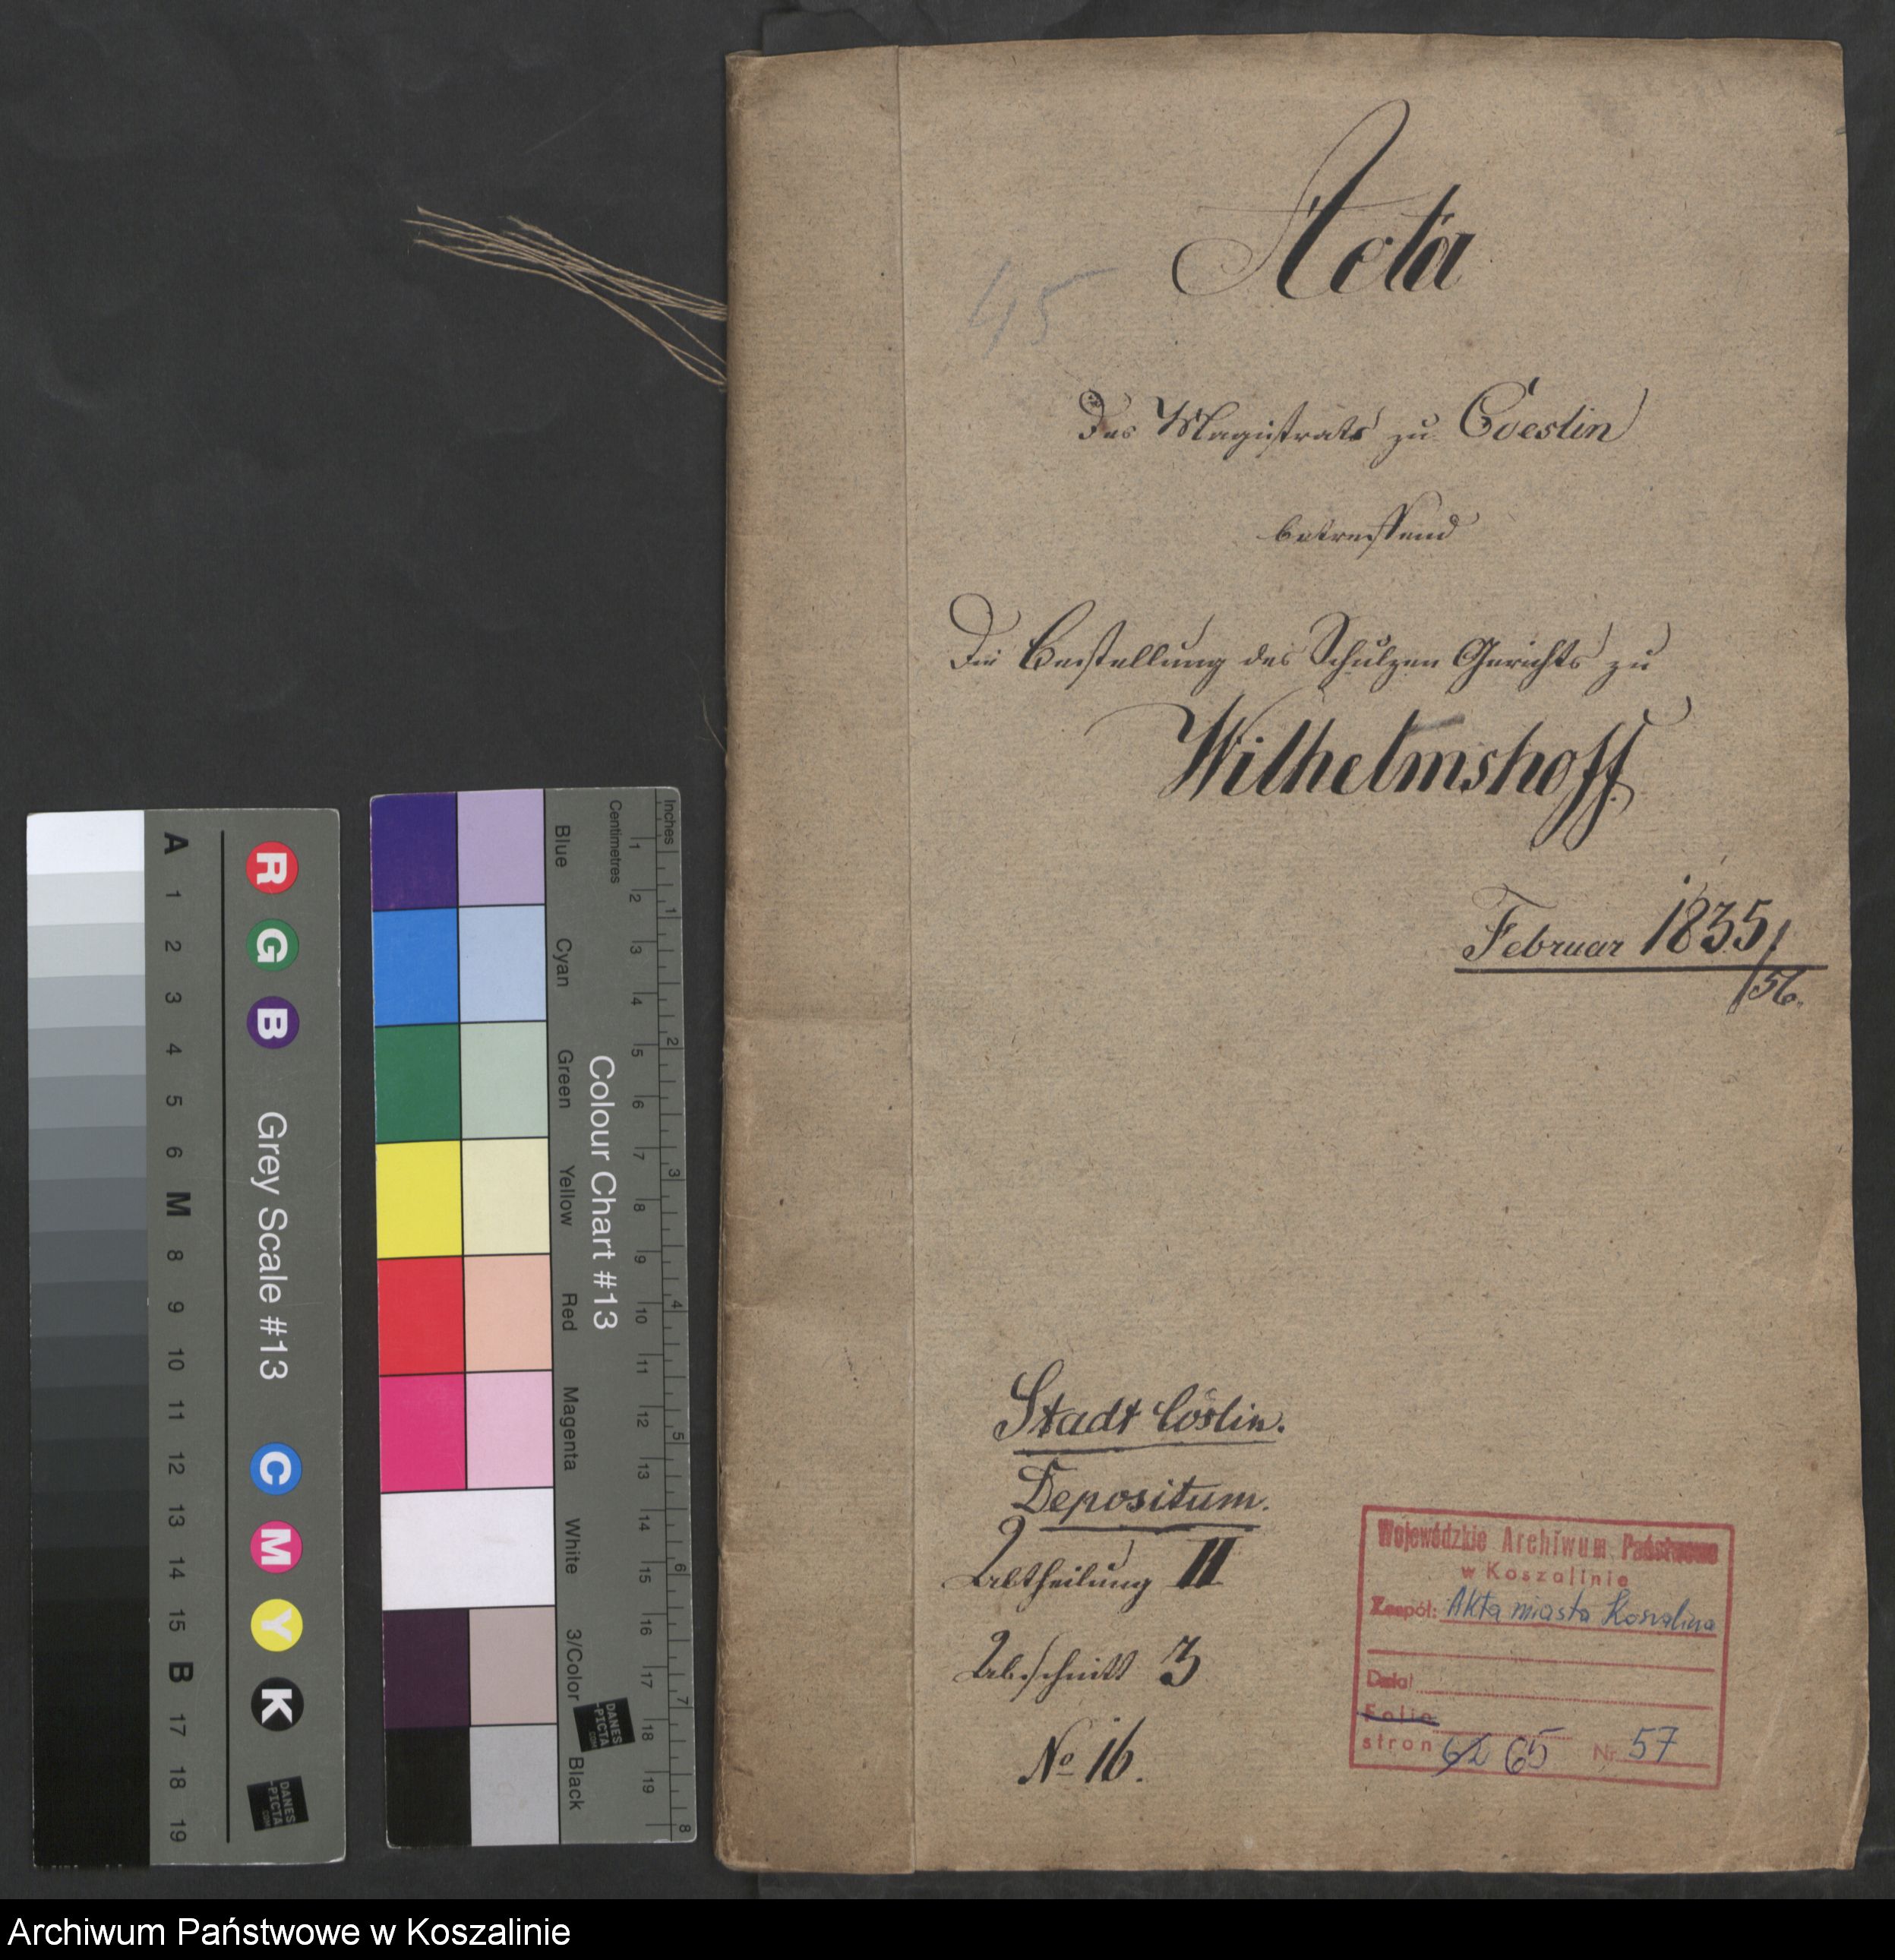 Acta
45
Des Magistrats zu Coeslin
betreffend
Die Bestellung des Schulzen Gerichts zu
Wilhelmshoff
Februar 1835/
/56.
Stadt Cöslin.
Depositum.
Abtheilung II
Abschnitt 3
No 16.
Wojewódzkie Archiwum Państwowe
w Koszalinie
Zespół: Akta miasta Koszalina
Dział
Folio
stron 62 65 Nr 57
A 1 2 3 4 5 6 M 8 9 10 11 12 13 14 15 B 17 18 19
R G B Grey Scale #13 C M Y K
DANES
-PICTA
.COM
Blue Cyan Green Yellow Red Magenta White 3/Color Black
Colour Chart #13
DANES
-PICTA
.COM
Centimetres 1 2 3 4 5 6 7 8 9 10 11 12 13 14 15 16 17 18 19
Inches 1 2 3 4 5 6 7 8
Archiwum Państwowe w Koszalinie